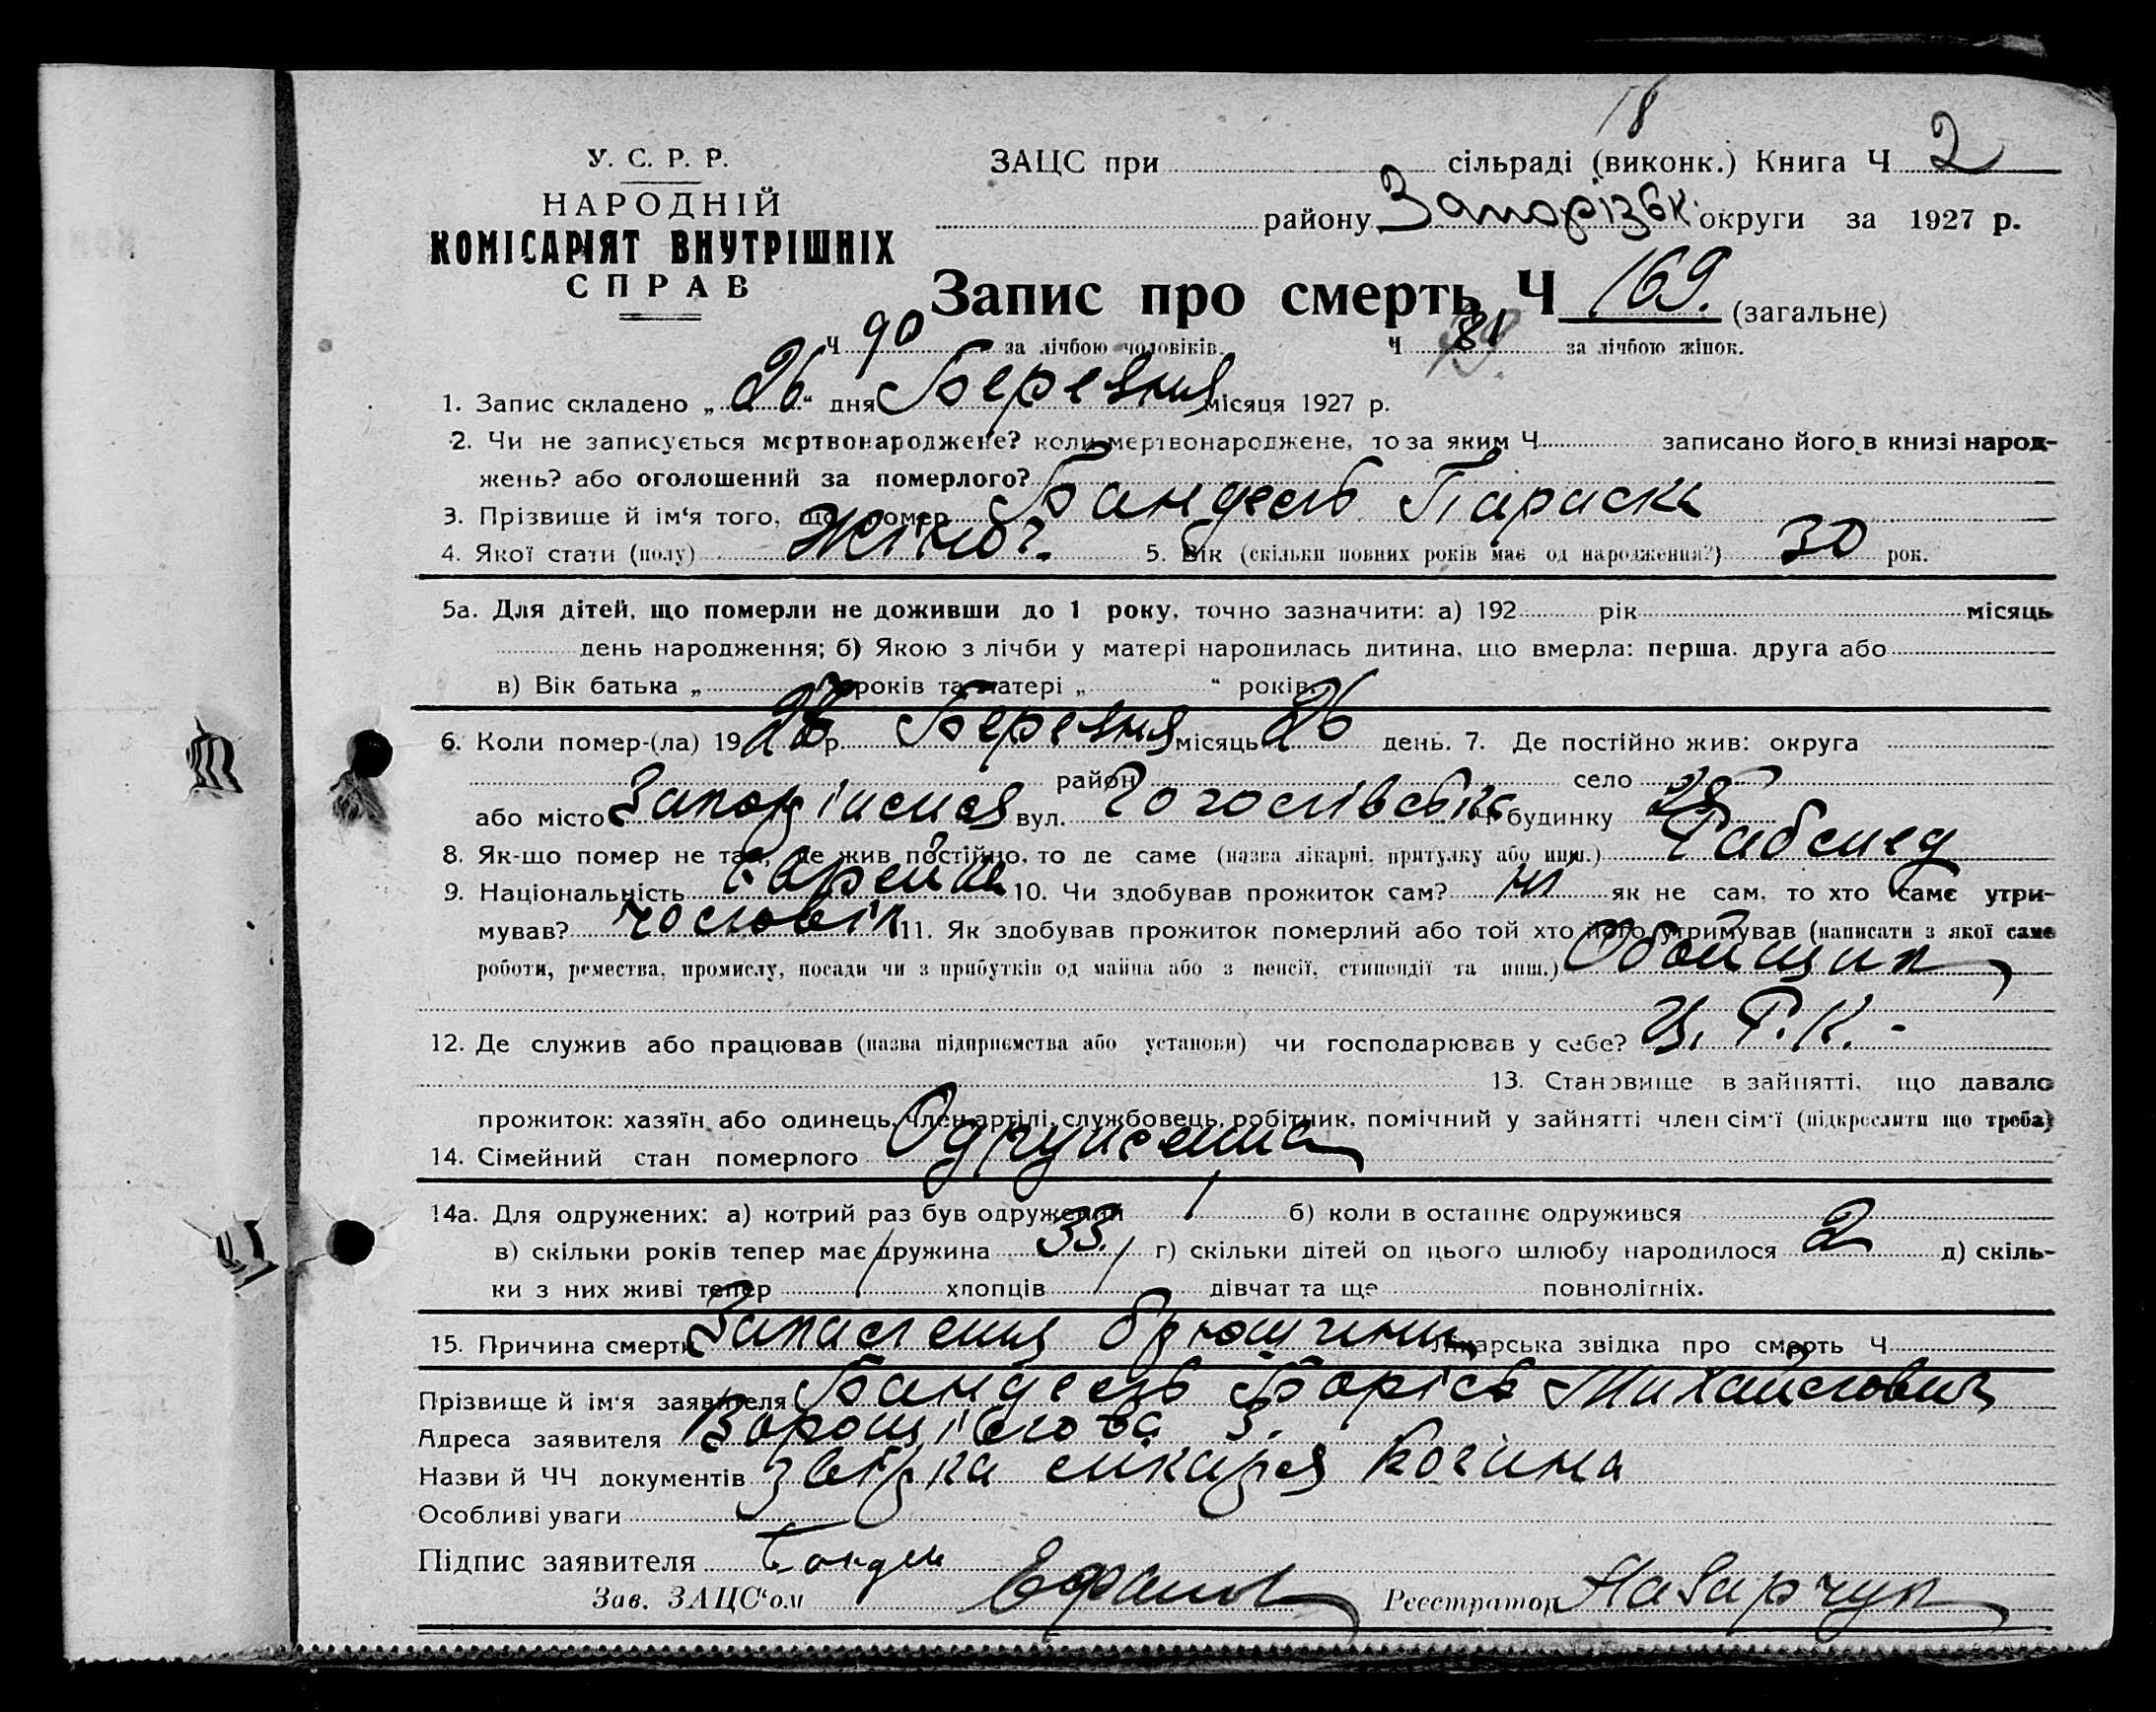 18
У. С. Р. Р.
НАРОДНІЙ
КОМІСАРІЯТ ВНУТРІШНІХ
СПРАВ
ЗАЦС при сільраді (виконк.) Книга Ч 2
району Запорізьк. округи за 1927 р.
Запис про смерть Ч 169. (загальне)
Ч 90 за лічбою чоловіків. Ч 81 за лічбою жінок.
1. Запис складено „ 26 “ дня Березня місяця 1927 р.
2. Чи не записується мертвонароджене? коли мертвонароджене, то за яким Ч записано його в книзі народ-
жень? або оголошений за померлого?
3. Прізвище й ім'я того, що помер Бандель Параска
4. Якої стати (полу) Жіноч. 5. Вік (скільки повних років має од народження?) 30 рок.
5а. Для дітей, що померли не доживши до 1 року, точно зазначити: а) 192 рік місяць
день народження; б) Якою з лічби у матері народилась дитина, що вмерла: перша, друга або
в) Вік батька „ років та матері „ “ років.
6. Коли помер-(ла) 19 р. Березня місяць 26 день. 7. Де постійно жив: округа
район село
або місто вул. Ч будинку 28
8. Як-що помер не там, де жив постійно, то де саме (назва лікарні, притулку або инш.)
9. Національність Єврейка 10. Чи здобував прожиток сам? ні як не сам, то хто саме утри-
мував? чоловік 11. Як здобував прожиток померлий або той хто його утримував (написати з якої саме
роботи, ремества, промислу, посади чи з прибутків од майна або з пенсії, стипендії та инш.) Обойщик
12. Де служив або працював (назва підприємства або установи) чи господарював у себе? Ц. Р. К. -
13. Становище в зайнятті, що давало
прожиток: хазяїн або одинець, член артілі, службовець, робітник, помічний у зайнятті член сім'ї (підкреслити що треба)
14. Сімейний стан померлого Одружена
14а. Для одружених: а) котрий раз був одружений 1 б) коли в останнє одружився
в) скільки років тепер має дружина 33. г) скільки дітей од цього шлюбу народилося 2 д) скіль-
ки з них живі тепер 1 хлопців 1 дівчат та ще повнолітніх.
15. Причина смерти Запаления брюшини Лікарська звідка про смерть Ч
Прізвище й ім'я заявителя Бандель Борісь Михайлович
Адреса заявителя 3.
Назви й ЧЧ документів звідка лікаря Когана
Особливі уваги
Підпис заявителя Бандель
Зав. ЗАЦС‘ом Реєстратор Назарчук